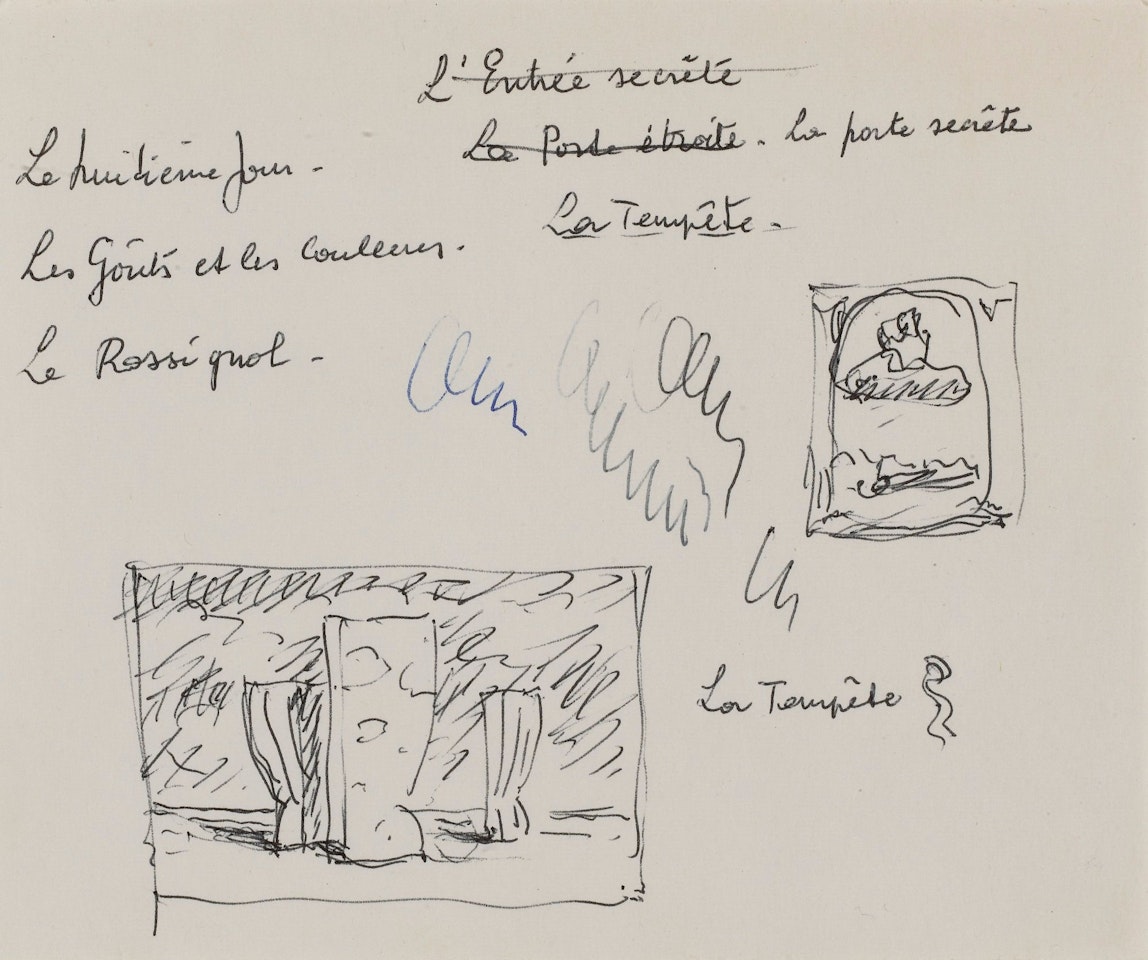 L'Entrée secrète
La Porte étroite. la porte secrète
La Tempête.
Le huitième Jour.
Les Goûts et les Couleurs.
Le Rossignol.
La Tempête